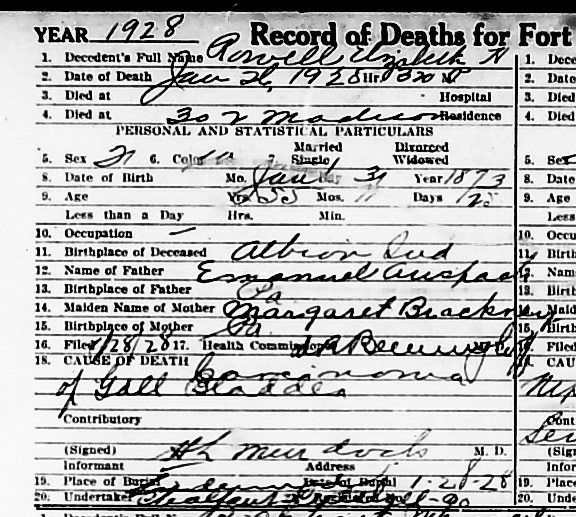 YEAR 1928 Record of Deaths for Fort
1. Decedent's Full Name Elizabeth A 1. Dece
2. Date of Death Jan 26, 1928 Hr. 320 M 2. Date
3. Died at Hospital 3. Died
4. Died at 302 Madison Residence 4. Died
PERSONAL AND STATISTICAL PARTICULARS
Married Divorced
5. Sex 6. Color 7. Single Widowed 5. Sex
8. Date of Birth Mo. Jan Day 31 Year 1873 8. Date
9. Age Yrs. Mos. 11 Days 25 9. Age
Less than a Day Hrs. Min. Less
10. Occupation — 10. Occu
11. Birthplace of Deceased Albion Ind 11. Birth
12. Name of Father Emanuel 12. Name
13. Birthplace of Father Pa 13. Birth
14. Maiden Name of Mother Margaret Brackney 14. Maid
15. Birthplace of Mother Pa 15. Birth
16. Filed 1/28/28 17. Health Commissioner 16. Filed
18. CAUSE OF DEATH Carcinoma 18. CAU
of Gall Bladder
Contributory Cont
(Signed) M. D. (Sign
Informant Address Infor
19. Place of Burial Date of Burial 1-28-28 19. Place
20. Undertaker 20. Unde